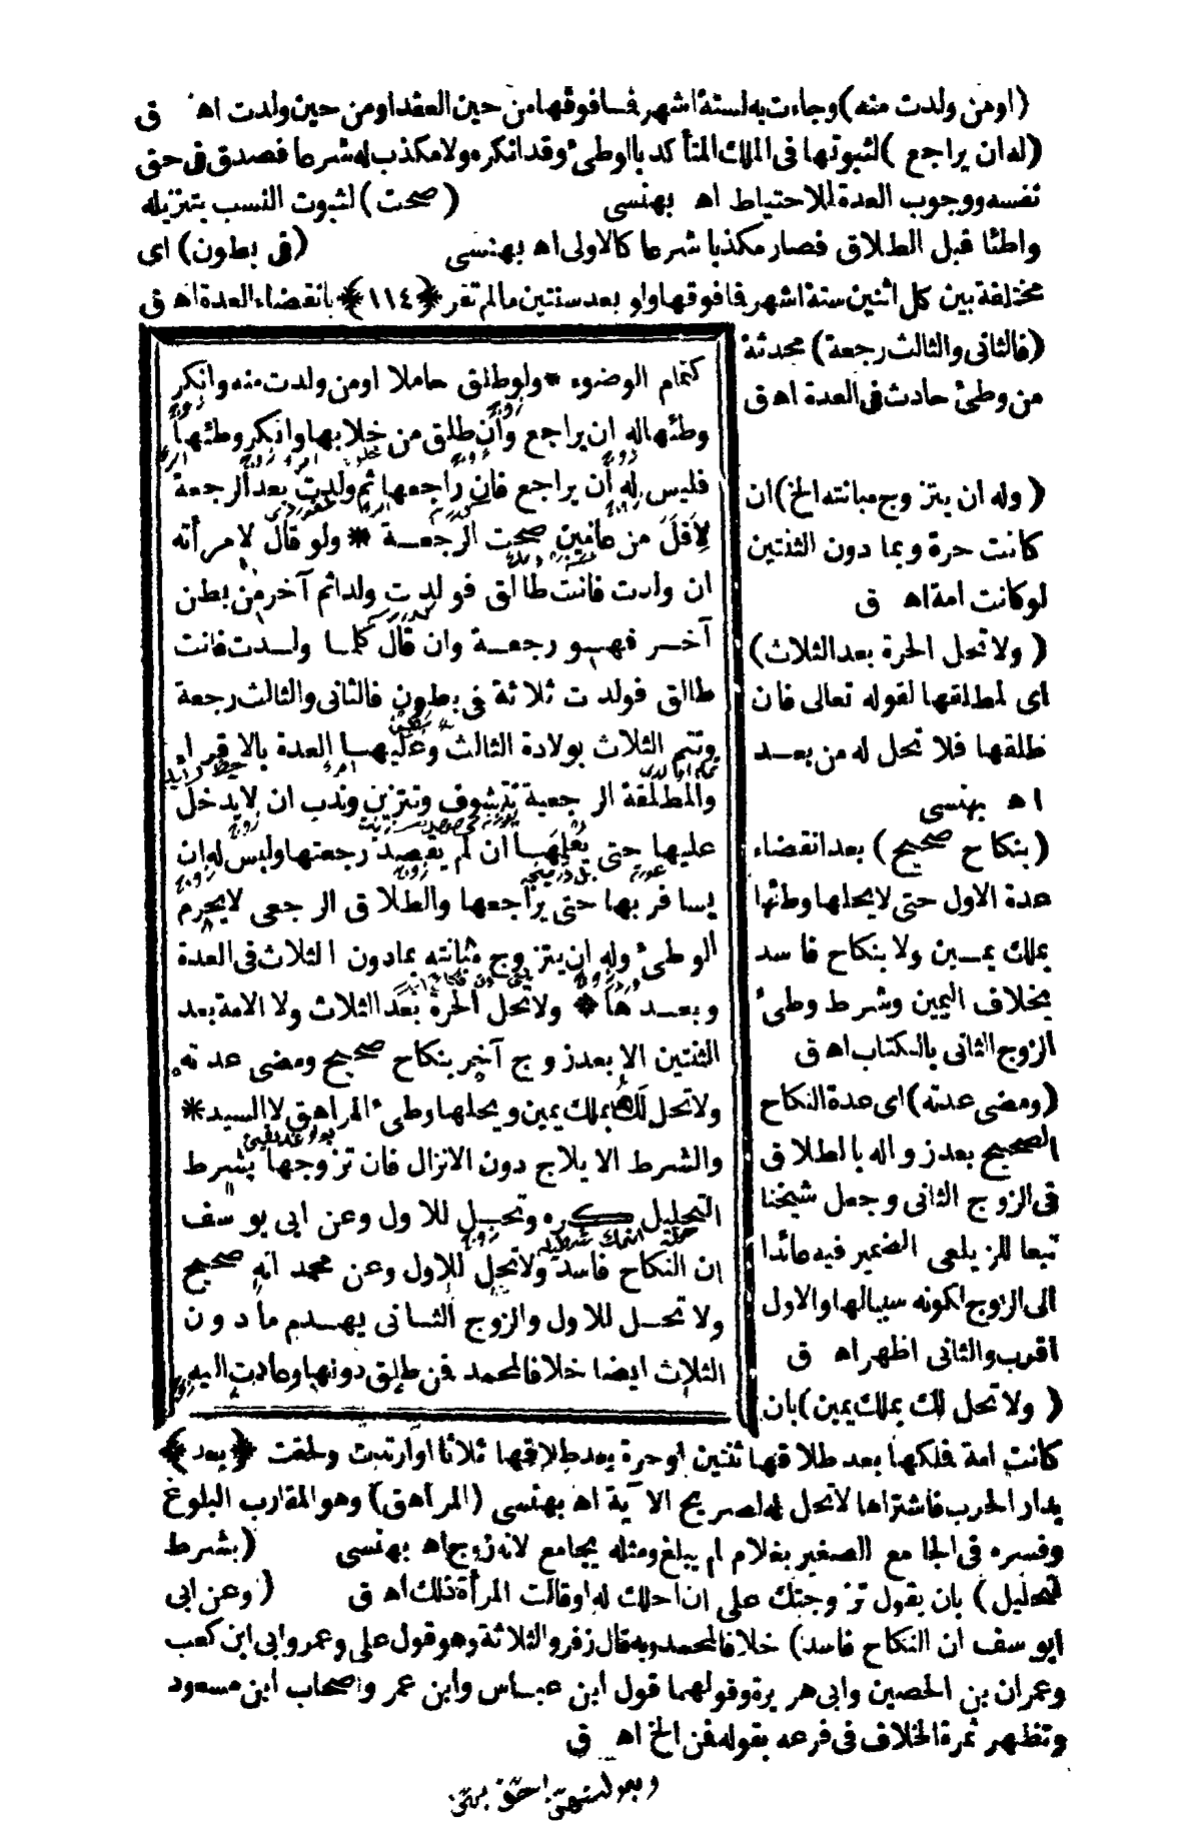 (او من ولدت منه) وجاءت به لستة اشهر فما فوقها من حين العقد او من حين ولدت اه ق
(له ان يراجع) لثبوتها فى الملك المتأكد بالوطئ وقد انكره ولا مكذب له شرعا فصدق فى حق
نفسه ووجوب العدة للاحتياط اه بهنسى (صحت) لثبوت النسب بتنزيله
واطئا قبل الطلاق فصار مكذبا شرعا كالاولى اه بهنسى (فى بطون) اى
مختلفة بين كل اثنين ستة اشهر فما فوقها ولو بعد سنتين ما لم تقر ﴿١١٤﴾ بانقضاء العدة اه ق
(فالثانى والثالث رجعة) محدثة
من وطئ حادث فى العدة اه ق
(وله ان يتزوج مبانته الخ) ان
كانت حرة وبما دون الثنتين
لو كانت امة اه ق
(ولا تحل الحرة بعد الثلاث)
اى لمطلقها لقوله تعالى فان
طلقها فلا تحل له من بعد
اه بهنسى
(بنكاح صحيح) بعد انقضاء
عدة الاول حتى لا يحلها وطئها
بملك يمين ولا بنكاح فاسد
بخلاف اليمين وشرط وطئ
الزوج الثانى بالكتاب اه ق
(ومضى عدته) اى عدة النكاح
الصحيح بعد زواله بالطلاق
فى الزوج الثانى وجعل شيخنا
تبعا للزيلعى الضمير فيه عائدا
الى الزوج لكونه سببا لها والاول
اقرب والثانى اظهر اه ق
(ولا تحل لك بملك يمين) بان
كتمام الوضوء * ولو طلق حاملا او من ولدت منه وانكر
وطئها له ان يراجع وان طلق من خلا بها وانكر وطئها
فليس له أن يراجع فان راجعها ثم ولدت بعد الرجعة
لاقل من عامين صحت الرجعة * ولو قال لامرأته
ان ولدت فانت طالق فولدت ولدا ثم آخر من بطن
آخر فهو رجعة وان قال كلما ولدت فانت
طالق فولدت ثلاثة فى بطون فالثانى والثالث رجعة
وتتم الثلاث بولادة الثالث وعليها العدة بالاقراء
والمطلقة الرجعية تتشوف وتتزين وندب ان لا يدخل
عليها حتى يعلمها ان لم يقصد رجعتها وليس له ان
يسافر بها حتى يراجعها والطلاق الرجعى لا يحرم
الوطئ وله ان يتزوج مبانته بما دون الثلاث فى العدة
وبعدها * ولا تحل الحرة بعد الثلاث ولا الامة بعد
الثنتين الا بعد زوج آخر بنكاح صحيح ومضى عدته
ولا تحل لك بملك يمين ويحلها وطئ المراهق لا السيد *
والشرط الايلاج دون الانزال فان تزوجها بشرط
التحليل كره وتحل للاول وعن ابى يوسف
ان النكاح فاسد ولا تحل للاول وعن محمد انه صحيح
ولا تحل للاول والزوج الثانى يهدم ما دون
الثلاث ايضا خلافا لمحمد فمن طلق دونها وعادت اليه
كانت امة فملكها بعد طلاقها ثنتين او حرة بعد طلاقها ثلاثا او ارتدت ولحقت ﴿بعد﴾
بدار الحرب فاشتراها لا تحل له لصريح الآية اه بهنسى (المراهق) وهو المقارب البلوغ
وفسره فى الجامع الصغير بغلام لم يبلغ ومثله يجامع لانه زوج اه بهنسى (بشرط
التحليل) بان يقول تزوجتك على ان احلك له او قالت المرأة ذلك اه ق (وعن ابى
ابو سف ان النكاح فاسد) خلافا لمحمد وبه قال زفر والثلاثة وهو قول على وعمر وابى ابن كعب
وعمران بن الحصين وابى هريرة وقولهما قول ابن عباس وابن عمر واصحاب ابن مسعود
وتظهر ثمرة الخلاف فى فرعه بقوله فمن الخ اه ق